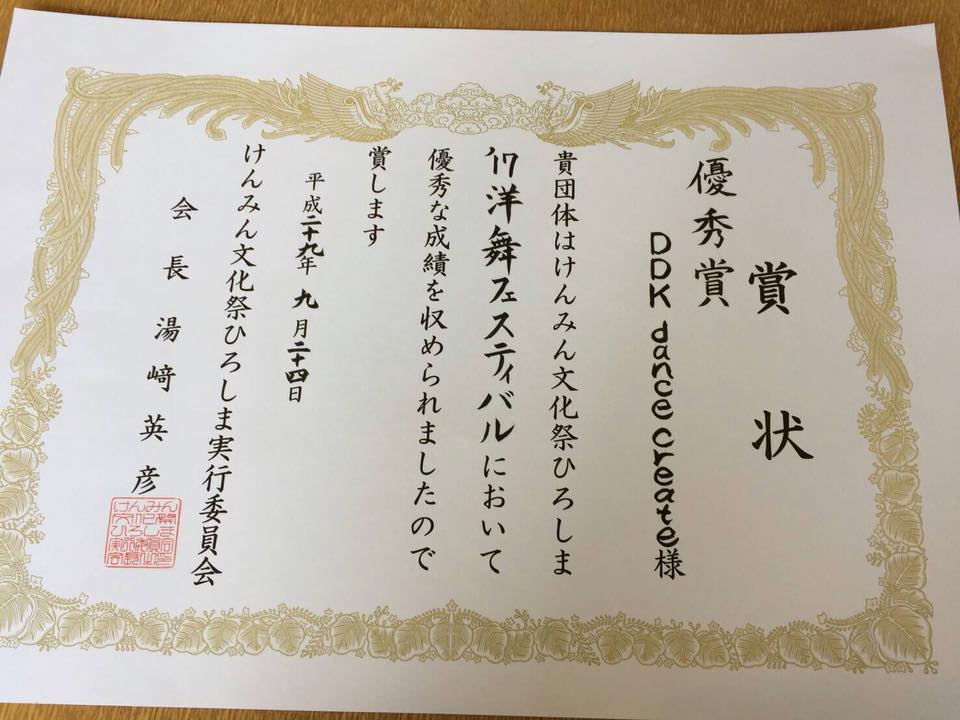 賞状
優秀賞
DDK dance create様
貴団体はけんみん文化祭ひろしま
'17洋舞フェスティバルにおいて
優秀な成績を収められましたので
賞します
平成二十九年 九月二十四日
けんみん文化祭ひろしま実行委員会
会長 湯﨑英彦